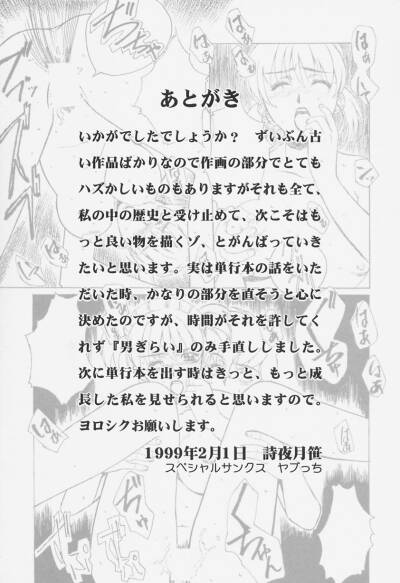 あとがき
いかがでしたでしょうか？　ずいぶん古
い作品ばかりなので作画の部分でとても
ハズかしいものもありますがそれも全て、
私の中の歴史と受け止めて、次こそはも
っと良い物を描くゾ、とがんばっていき
たいと思います。実は単行本の話をいた
だいた時、かなりの部分を直そうと心に
決めたのですが、時間がそれを許してく
れず『男ぎらい』のみ手直ししました。
次に単行本を出す時はきっと、もっと成
長した私を見せられると思いますので。
ヨロシクお願いします。
1999年2月1日　詩夜月笹
スペシャルサンクス　ヤブっち
はあ
はぁ
はぁ
はあ